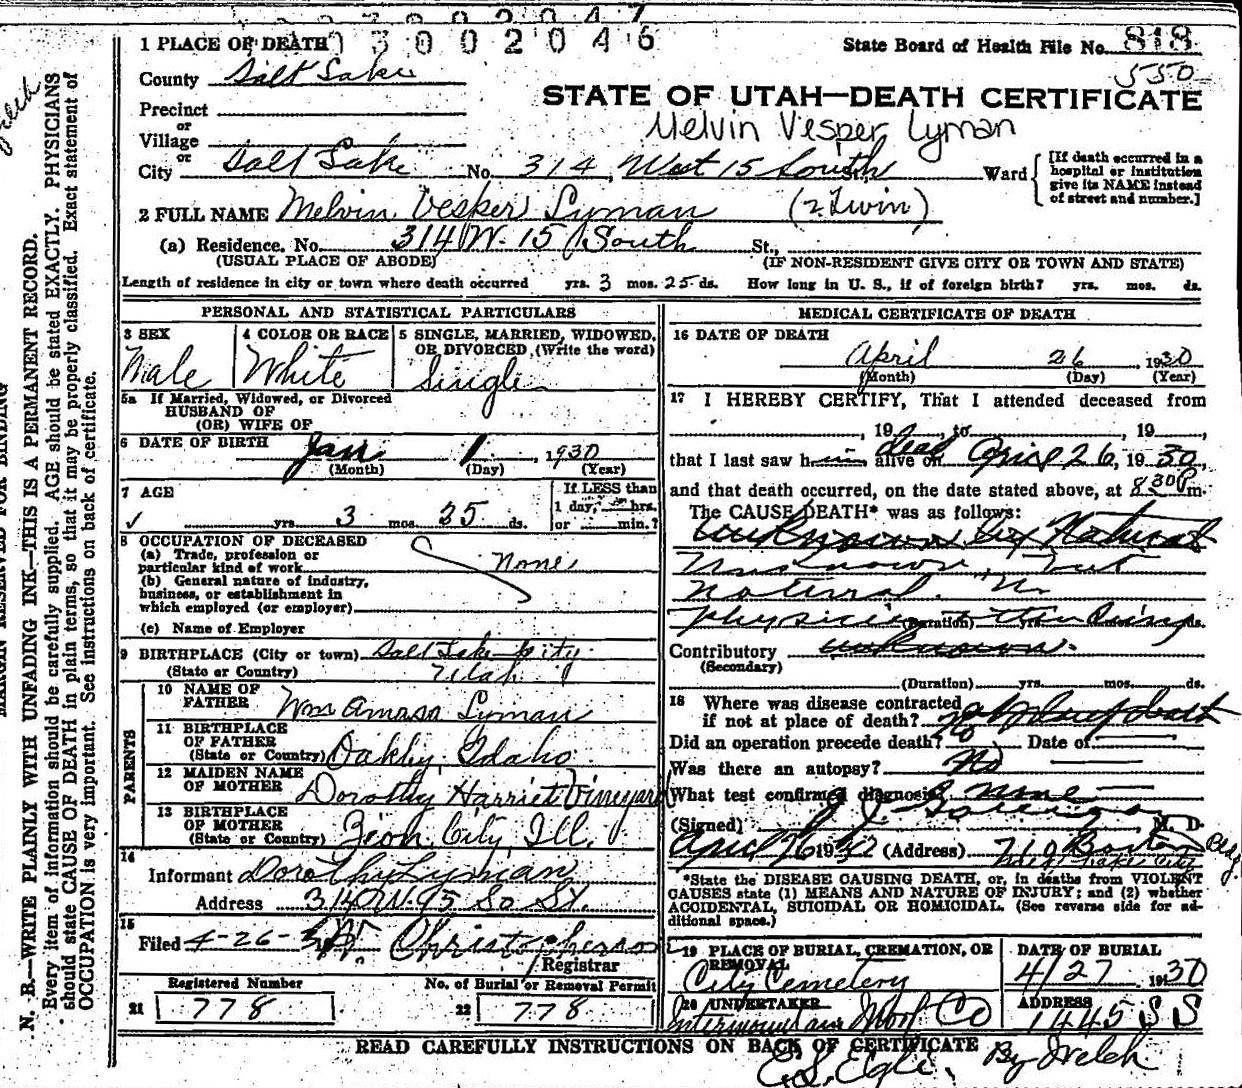 3002046
1 PLACE OF DEATH
State Board of Health File No. 818
550
County Salt Lake
STATE OF UTAH—DEATH CERTIFICATE
Precinct
or
Village
Melvin Vesper Lyman
or
City Salt Lake No. 314 West 15 South Ward
[If death occurred in a hospital or institution give its NAME instead of street and number.]
2 FULL NAME Melvin Vesper Lyman (2 Twin)
(a) Residence. No. 314 W. 15 South St.,
(USUAL PLACE OF ABODE) (IF NON-RESIDENT GIVE CITY OR TOWN AND STATE)
Length of residence in city or town where death occurred yrs. 3 mos. 25 ds. How long in U. S., if of foreign birth? yrs. mos. ds.
PERSONAL AND STATISTICAL PARTICULARS
3 SEX
Male
4 COLOR OR RACE
White
5 SINGLE, MARRIED, WIDOWED, OR DIVORCED, (Write the word)
Single
5a If Married, Widowed, or Divorced
HUSBAND OF
(OR) WIFE OF
6 DATE OF BIRTH Jan 1, 1930
(Month) (Day) (Year)
7 AGE
yrs. 3 mos. 25 ds.
If LESS than
1 day, hrs.
or min.?
8 OCCUPATION OF DECEASED
(a) Trade, profession or
particular kind of work None
(b) General nature of industry,
business, or establishment in
which employed (or employer)
(c) Name of Employer
9 BIRTHPLACE (City or town) Salt Lake City
(State or Country) Utah
PARENTS
10 NAME OF
FATHER Wm Amasa Lyman
11 BIRTHPLACE
OF FATHER
(State or Country) Oakley, Idaho
12 MAIDEN NAME
OF MOTHER Dorothy Harriet Vineyard
13 BIRTHPLACE
OF MOTHER
(State or Country) Zion City, Ill.
14
Informant Dorothy Lyman
Address 314 W. 15 So St.
15
Filed 4-26-30 Christopherson
Registrar
Registered Number
21 778
No. of Burial or Removal Permit
22 778
MEDICAL CERTIFICATE OF DEATH
16 DATE OF DEATH
April 26, 1930
(Month) (Day) (Year)
17 I HEREBY CERTIFY, That I attended deceased from
, 19 , to , 19 ,
that I last saw him alive on dead April 26, 1930,
and that death occurred, on the date stated above, at 8 30 P m.
The CAUSE DEATH* was as follows:
Unknown but Natural
Unknown, but
Natural. No
Physician
(Duration) yrs. ds.
Contributory unknown.
(Secondary)
(Duration) yrs. mos. ds.
18 Where was disease contracted
if not at place of death?
Did an operation precede death? No Date of
Was there an autopsy? No
What test confirmed diagnosis? none
(Signed) M. D.
April 26 1930 (Address) 710 Boston Bldg.
Salt Lake City
*State the DISEASE CAUSING DEATH, or, in deaths from VIOLENT
CAUSES state (1) MEANS AND NATURE OF INJURY; and (2) whether
ACCIDENTAL, SUICIDAL OR HOMICIDAL. (See reverse side for ad-
ditional space.)
19 PLACE OF BURIAL, CREMATION, OR
REMOVAL
City Cemetery
DATE OF BURIAL
4/27 1930
20 UNDERTAKER
Intermountain Co
ADDRESS
1445 S S
READ CAREFULLY INSTRUCTIONS ON BACK OF CERTIFICATE
By Welch
MARGIN RESERVED FOR BINDING
N. B.—WRITE PLAINLY WITH UNFADING INK—THIS IS A PERMANENT RECORD.
Every item of information should be carefully supplied. AGE should be stated EXACTLY. PHYSICIANS
should state CAUSE OF DEATH in plain terms, so that it may be properly classified. Exact statement of
OCCUPATION is very important. See instructions on back of certificate.